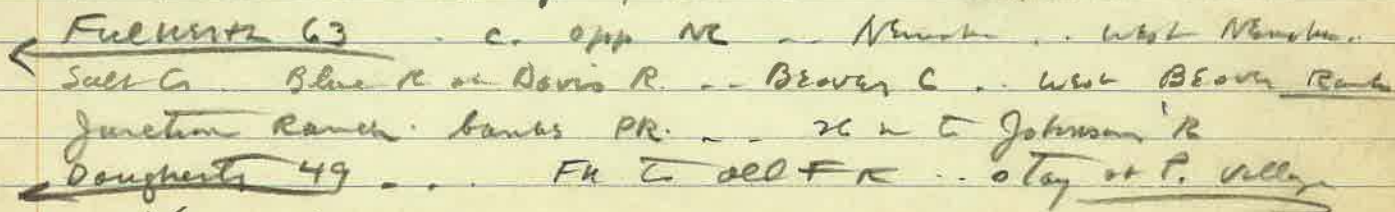 Fulkerth 63 . c. opp NC .. Nemaha .. West Nemaha.
Salt C. Blue R or Davis R. .. Beaver C .. West Beaver Ranch
Junction Ranch. banks PR. .. to Johnson R
Dougherty 49 ... FK to old FK .. stay at P. village